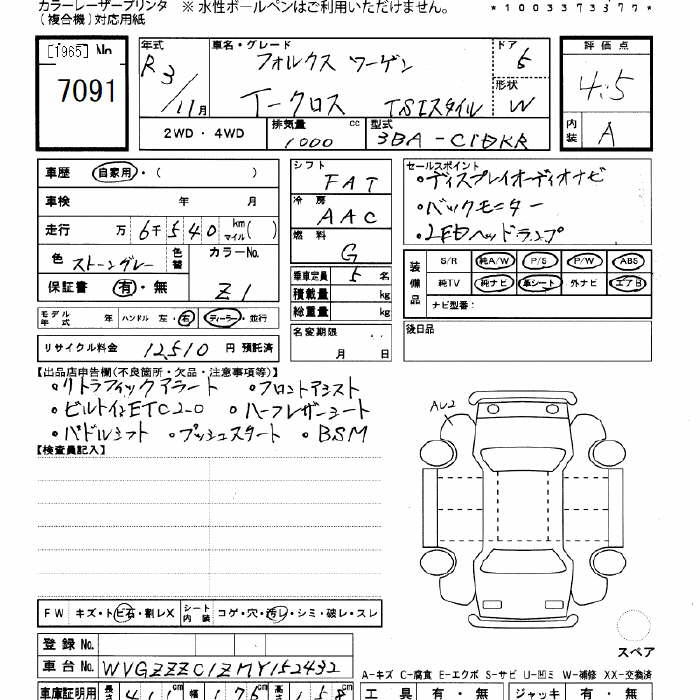 カラーレーザープリンタ ※ 水性ボールペンはご利用いただけません。 *1003373377*
(複合機)対応用紙
[1965] No 7091
年式 R3/11月
車名・グレード フォルクスワーゲン
T-クロス TSIスタイル
ドア 5
形状 W
評価点 4.5
内装 A
2WD・4WD
排気量 1000 cc
型式 3BA-C1DKR
車歴 自家用・( )
車検 年 月
走行 万 6千540 km マイル( )
色 ストーングレー 色替 カラーNo. Z1
保証書 有・無
シフト FAT
冷房 AAC
燃料 G
セールスポイント
・ディスプレイオーディオナビ
・バックモニター
・LEDヘッドランプ
乗車定員 5 名
積載量 kg
総重量 kg
装備品 S/R 純A/W P/S P/W ABS
純TV 純ナビ 革シート 外ナビ エアB
ナビ型番:
モデル年式 年 ハンドル 左・右 ディーラー・並行
名変期限 . .
月 日
後日品
リサイクル料金 12510 円 預託済
【出品店申告欄(不良箇所・欠品・注意事項等)】
・リトラフィックアラート ・フロントアシスト
・ビルトインETC2-0 ・ハーフレザーシート
・パドルシフト ・プッシュスタート ・BSM
【検査員記入】
AU2
FW キズ・トビ石・割レX シート内装 コゲ・穴・汚レ・シミ・破レ・スレ
スペア
登録No.
車台No. WVGZZZC1ZMY152432
A-キズ C-腐食 E-エクボ S-サビ U-凹ミ W-補修 XX-交換済
車庫証明用 長さ 411cm 幅 175cm 高さ 158cm
工具 有・無 ジャッキ 有・無